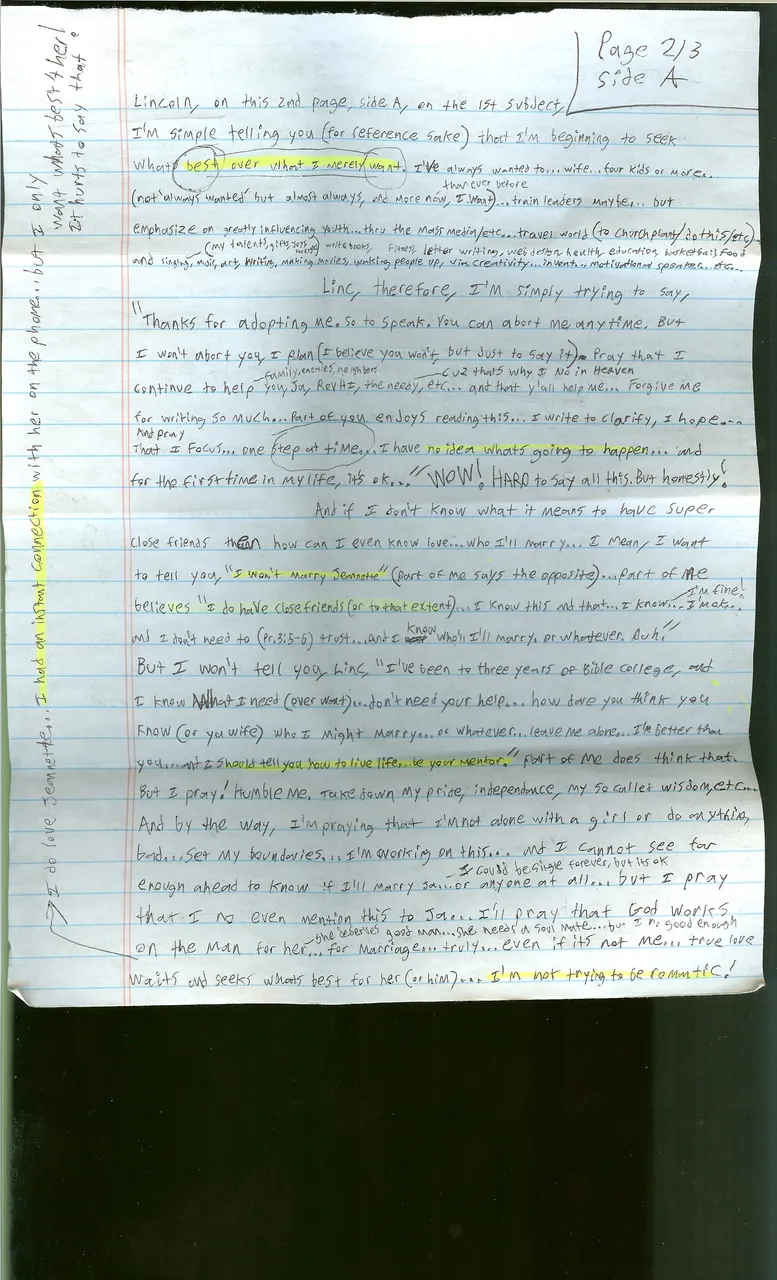 Page 2/3
side A
Lincoln, on this 2nd page, side A, on the 1st subject,
I'm simple telling you (for reference sake) that I'm beginning to seek
whats best over what I merely want. I've always wanted to... wife... four kids or more...
than ever before
(not 'always wanted' but almost always, and more now, I want)... train leaders maybe... but
emphasize on greatly influencing youth... thru the mass media/etc... travel world (to church plant/do this/etc).
(my talents, gifts, joys) write books, Fitness letter writing, web design, health, education, basketball, food
and singing, music, art, writing, making movies, waking people up, via creativity... invent... motivational speaker... etc...
Linc, therefore, I'm simply trying to say,
"Thanks for adopting me. so to speak. You can abort me any time. But
I won't abort you, I plan (I believe you won't, but just to say it). Pray that I
family, enemies, neighbors
cuz that's why I No in Heaven
continue to help you, Ja, Rev HI, the needy, etc... and that y'all help me... Forgive me
for writing so much... part of you enjoys reading this... I write to clarify, I hope...
And pray
That I focus... one step at time... I have no idea whats going to happen... and
for the first time in my life, it's ok... "WOW! HARD to say all this. But honestly!
And if I don't know what it means to have super
close friends then how can I even know love... who I'll marry... I mean, I want
to tell you, "I won't marry Jeannette" (part of me says the opposite)... part of me
I'm fine!
believes "I do have close friends (or to that extent)... I know this and that... I know... I'm ok...
and I don't need to (Pr. 3:5-6) trust... And I know who'll I'll marry. or whatever. Duh!"
But I won't tell you, Linc, "I've been to three years of Bible college, and
I know What I need (over want)... don't need your help... how dare you think you
know (or you wife) who I might marry... or whatever... leave me alone... I'm better than
you... and I should tell you how to live life... be your mentor." part of me does think that.
But I pray! Humble me. Take down my pride, independence, my so called wisdom, etc...
And by the way, I'm praying that I'm not alone with a girl or do anything
bad... set my boundaries... I'm working on this... and I cannot see far
I could be single forever, but its ok
enough ahead to know if I'll marry Ja... or anyone at all... but I pray
that I no even mention this to Ja... I'll pray that God works
she deserves good man... she needs a soul mate... but I no good enough
on the man for her... for marriage... truly... even if its not me... true love
waits and seeks whats best for her (or him)... I'm not trying to be romantic!
I do love Jeannette... I had an instant connection with her on the phone... but I only
want whats best 4 her!
It hurts to say that!